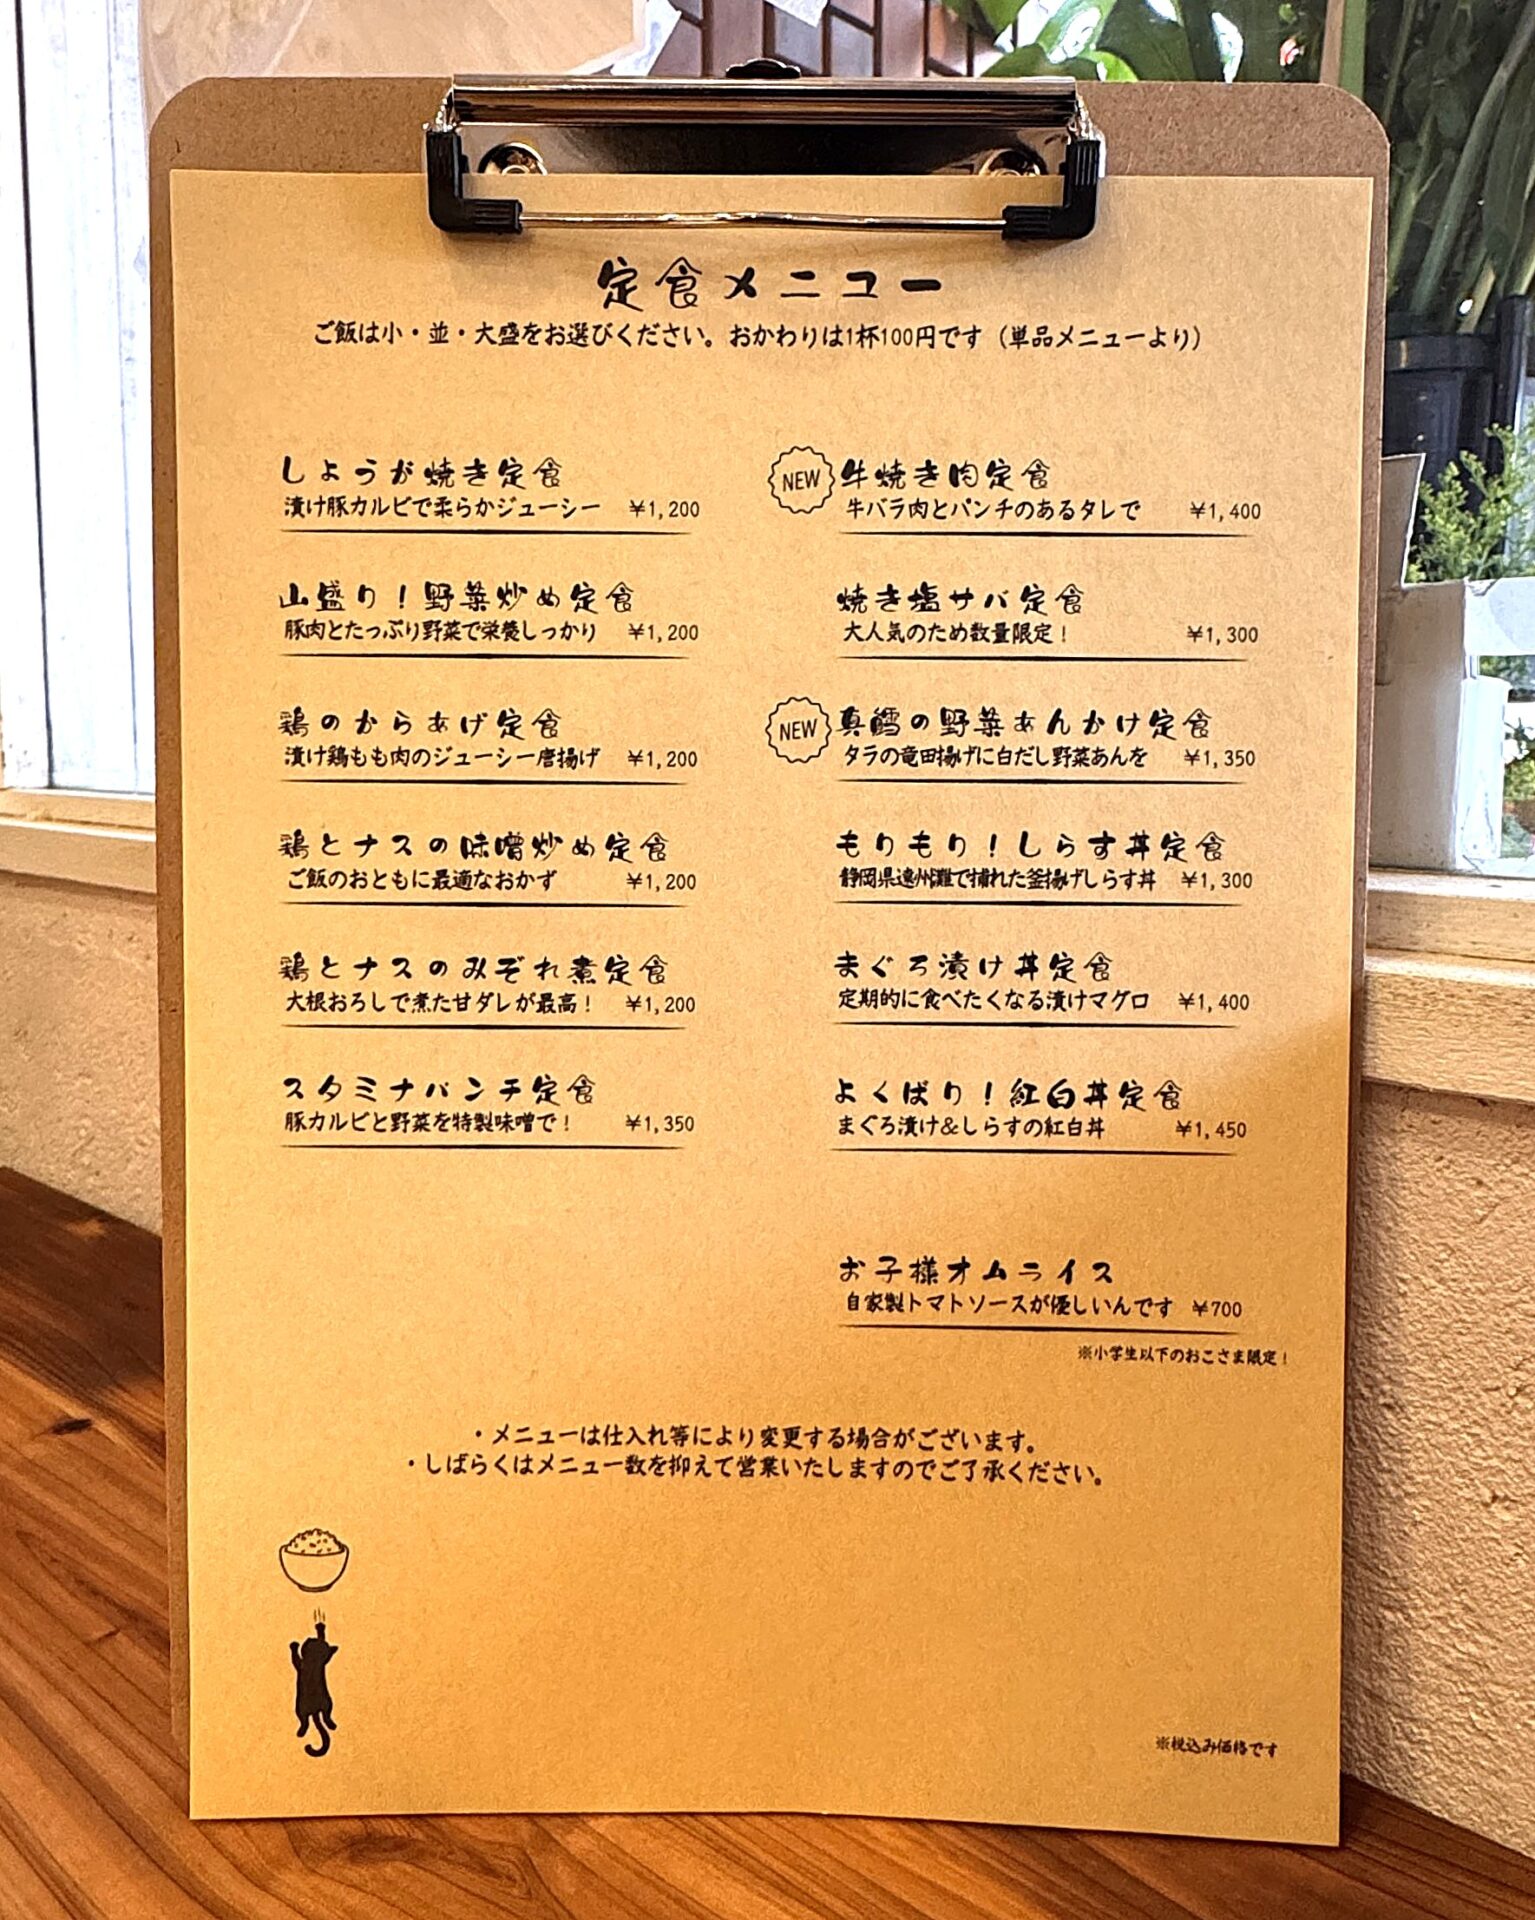 定食メニュー
ご飯は小・並・大盛をお選びください。おかわりは1杯100円です（単品メニューより）
しょうが焼き定食
漬け豚カルビで柔らかジューシー ¥1,200
山盛り！野菜炒め定食
豚肉とたっぷり野菜で栄養しっかり ¥1,200
鶏のからあげ定食
漬け鶏もも肉のジューシー唐揚げ ¥1,200
鶏とナスの味噌炒め定食
ご飯のおともに最適なおかず ¥1,200
鶏とナスのみぞれ煮定食
大根おろしで煮た甘ダレが最高！ ¥1,200
スタミナパンチ定食
豚カルビと野菜を特製味噌で！ ¥1,350
NEW 牛焼き肉定食
牛バラ肉とパンチのあるタレで ¥1,400
焼き塩サバ定食
大人気のため数量限定！ ¥1,300
NEW 真鱈の野菜あんかけ定食
タラの竜田揚げに白だし野菜あんを ¥1,350
もりもり！しらす丼定食
静岡県遠州灘で捕れた釜揚げしらす丼 ¥1,300
まぐろ漬け丼定食
定期的に食べたくなる漬けマグロ ¥1,400
よくばり！紅白丼定食
まぐろ漬け&しらすの紅白丼 ¥1,450
お子様オムライス
自家製トマトソースが優しいんです ¥700
※小学生以下のおこさま限定！
・メニューは仕入れ等により変更する場合がございます。
・しばらくはメニュー数を抑えて営業いたしますのでご了承ください。
※税込み価格です